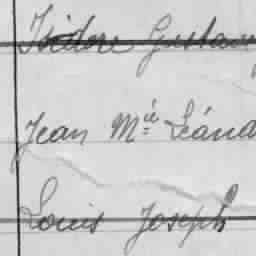 Isidore Gustave
Jean Mié Léand
Louis Joseph